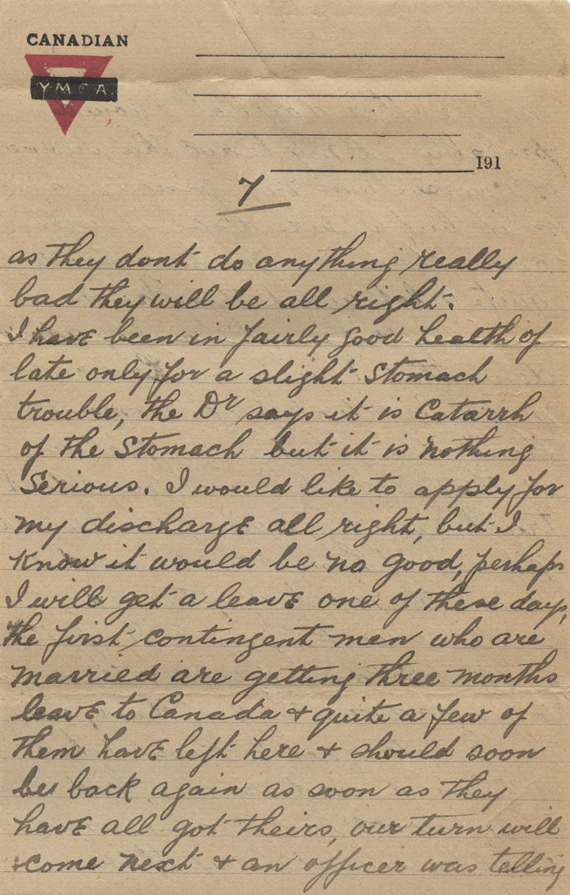 CANADIAN
YMCA
191
7
as they dont do anything really
bad they will be all right.
I have been in fairly good health of
late only for a slight Stomach
trouble, the Dr says it is Catarrh
of the Stomach but it is nothing
Serious. I would like to apply for
my discharge all right, but I
know it would be no good, perhaps
I will get a leave one of these days,
the first contingent men who are
married are getting three months
leave to Canada & quite a few of
them have left here & should soon
be back again as soon as they
have all got theirs, our turn will
come next & an officer was telling